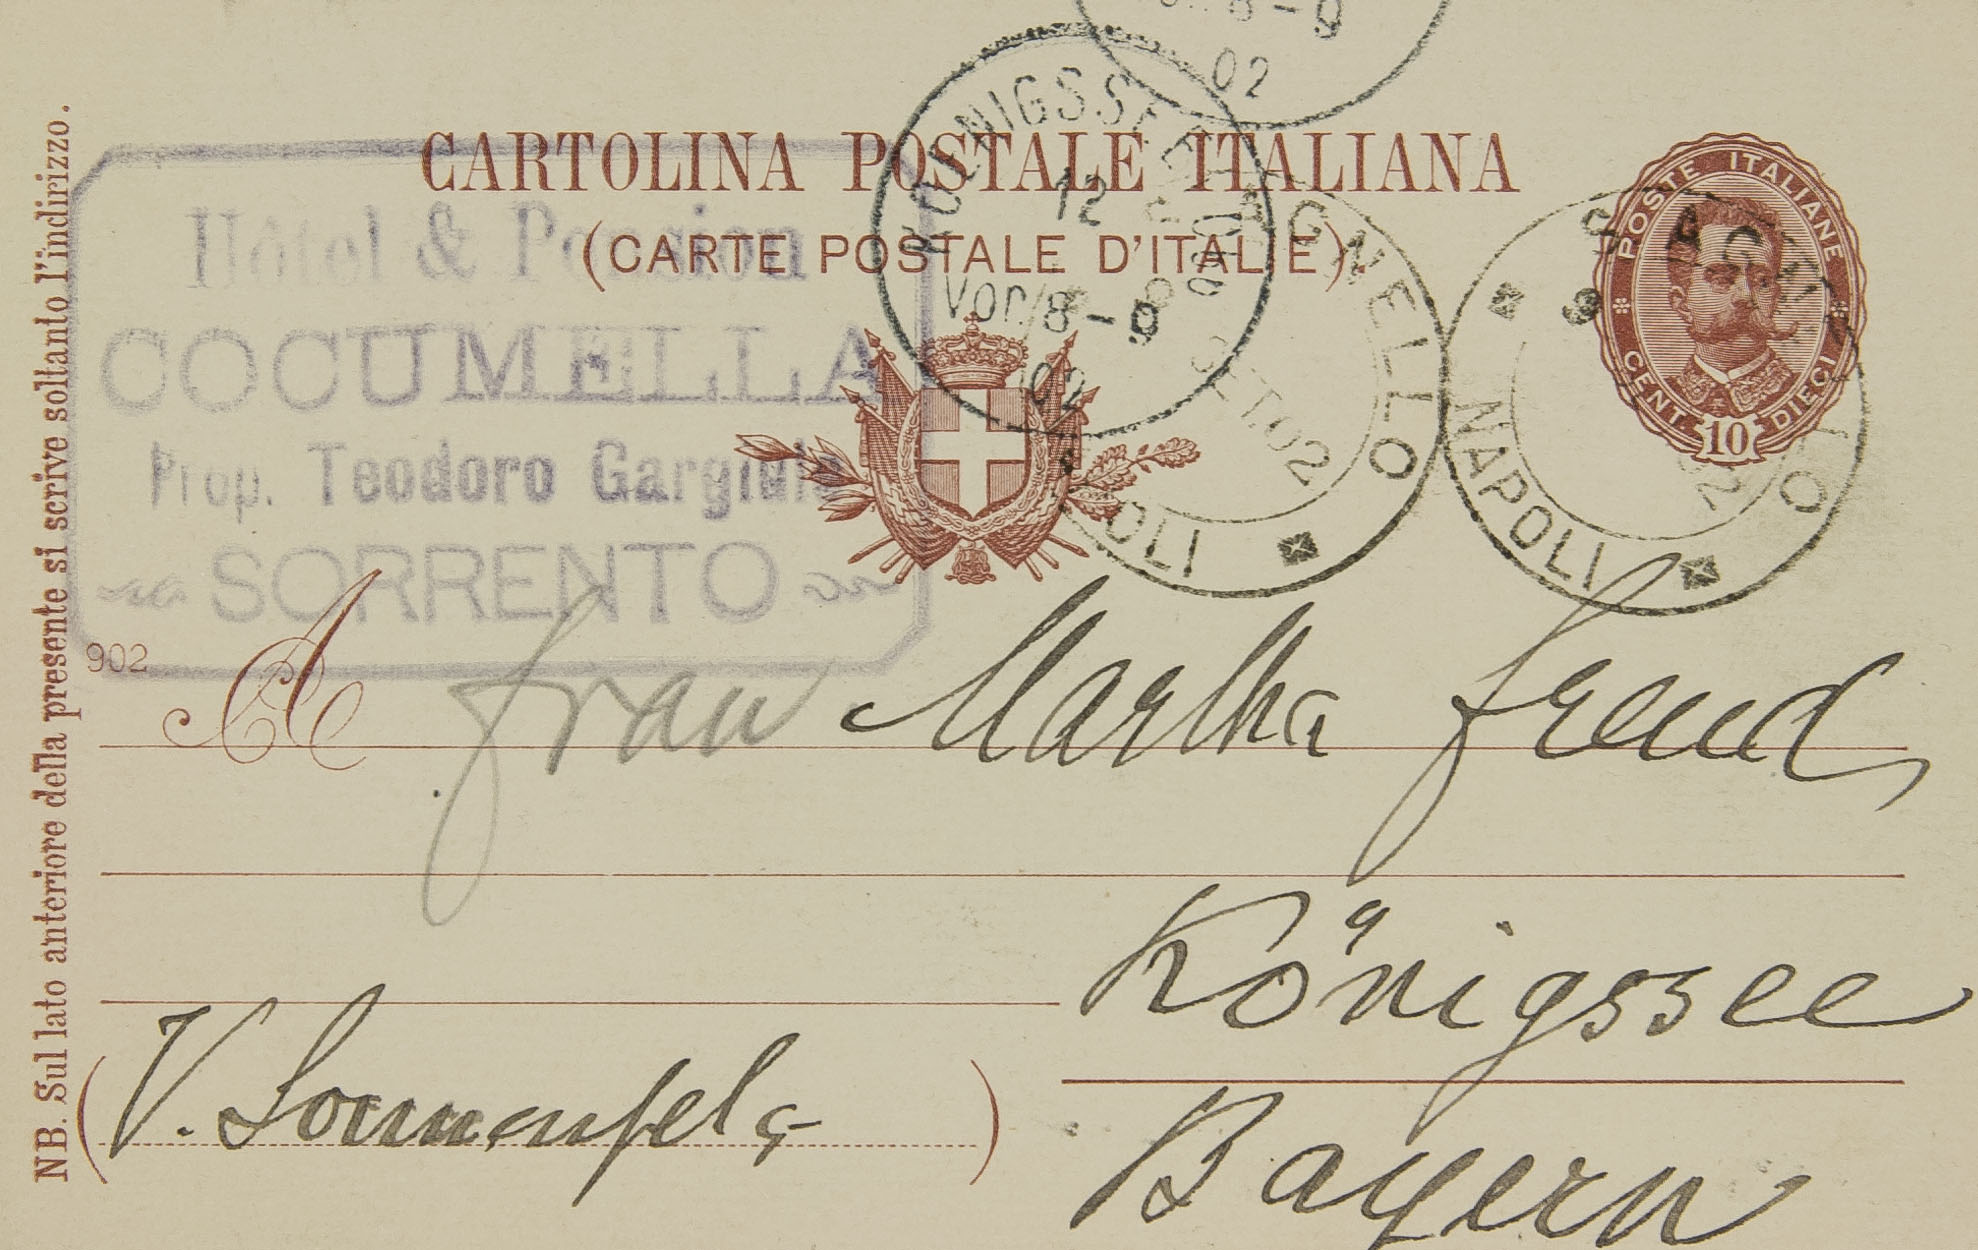 Vor. 8-9
02
KOENIGSSEE
12
Vor. 8-9
02
CARTOLINA POSTALE ITALIANA
(CARTE POSTALE D'ITALIE).
POSTE ITALIANE
CENT. 10 DIECI
Hôtel & Pension
COCUMELLA
Prop. Teodoro Gargiulo
SORRENTO
AGNELLO
SET.02
NAPOLI
902
A Frau Martha Freud
Königssee
Bayern
(V. Sonnenfels)
NB. Sul lato anteriore della presente si scrive soltanto l'indirizzo.